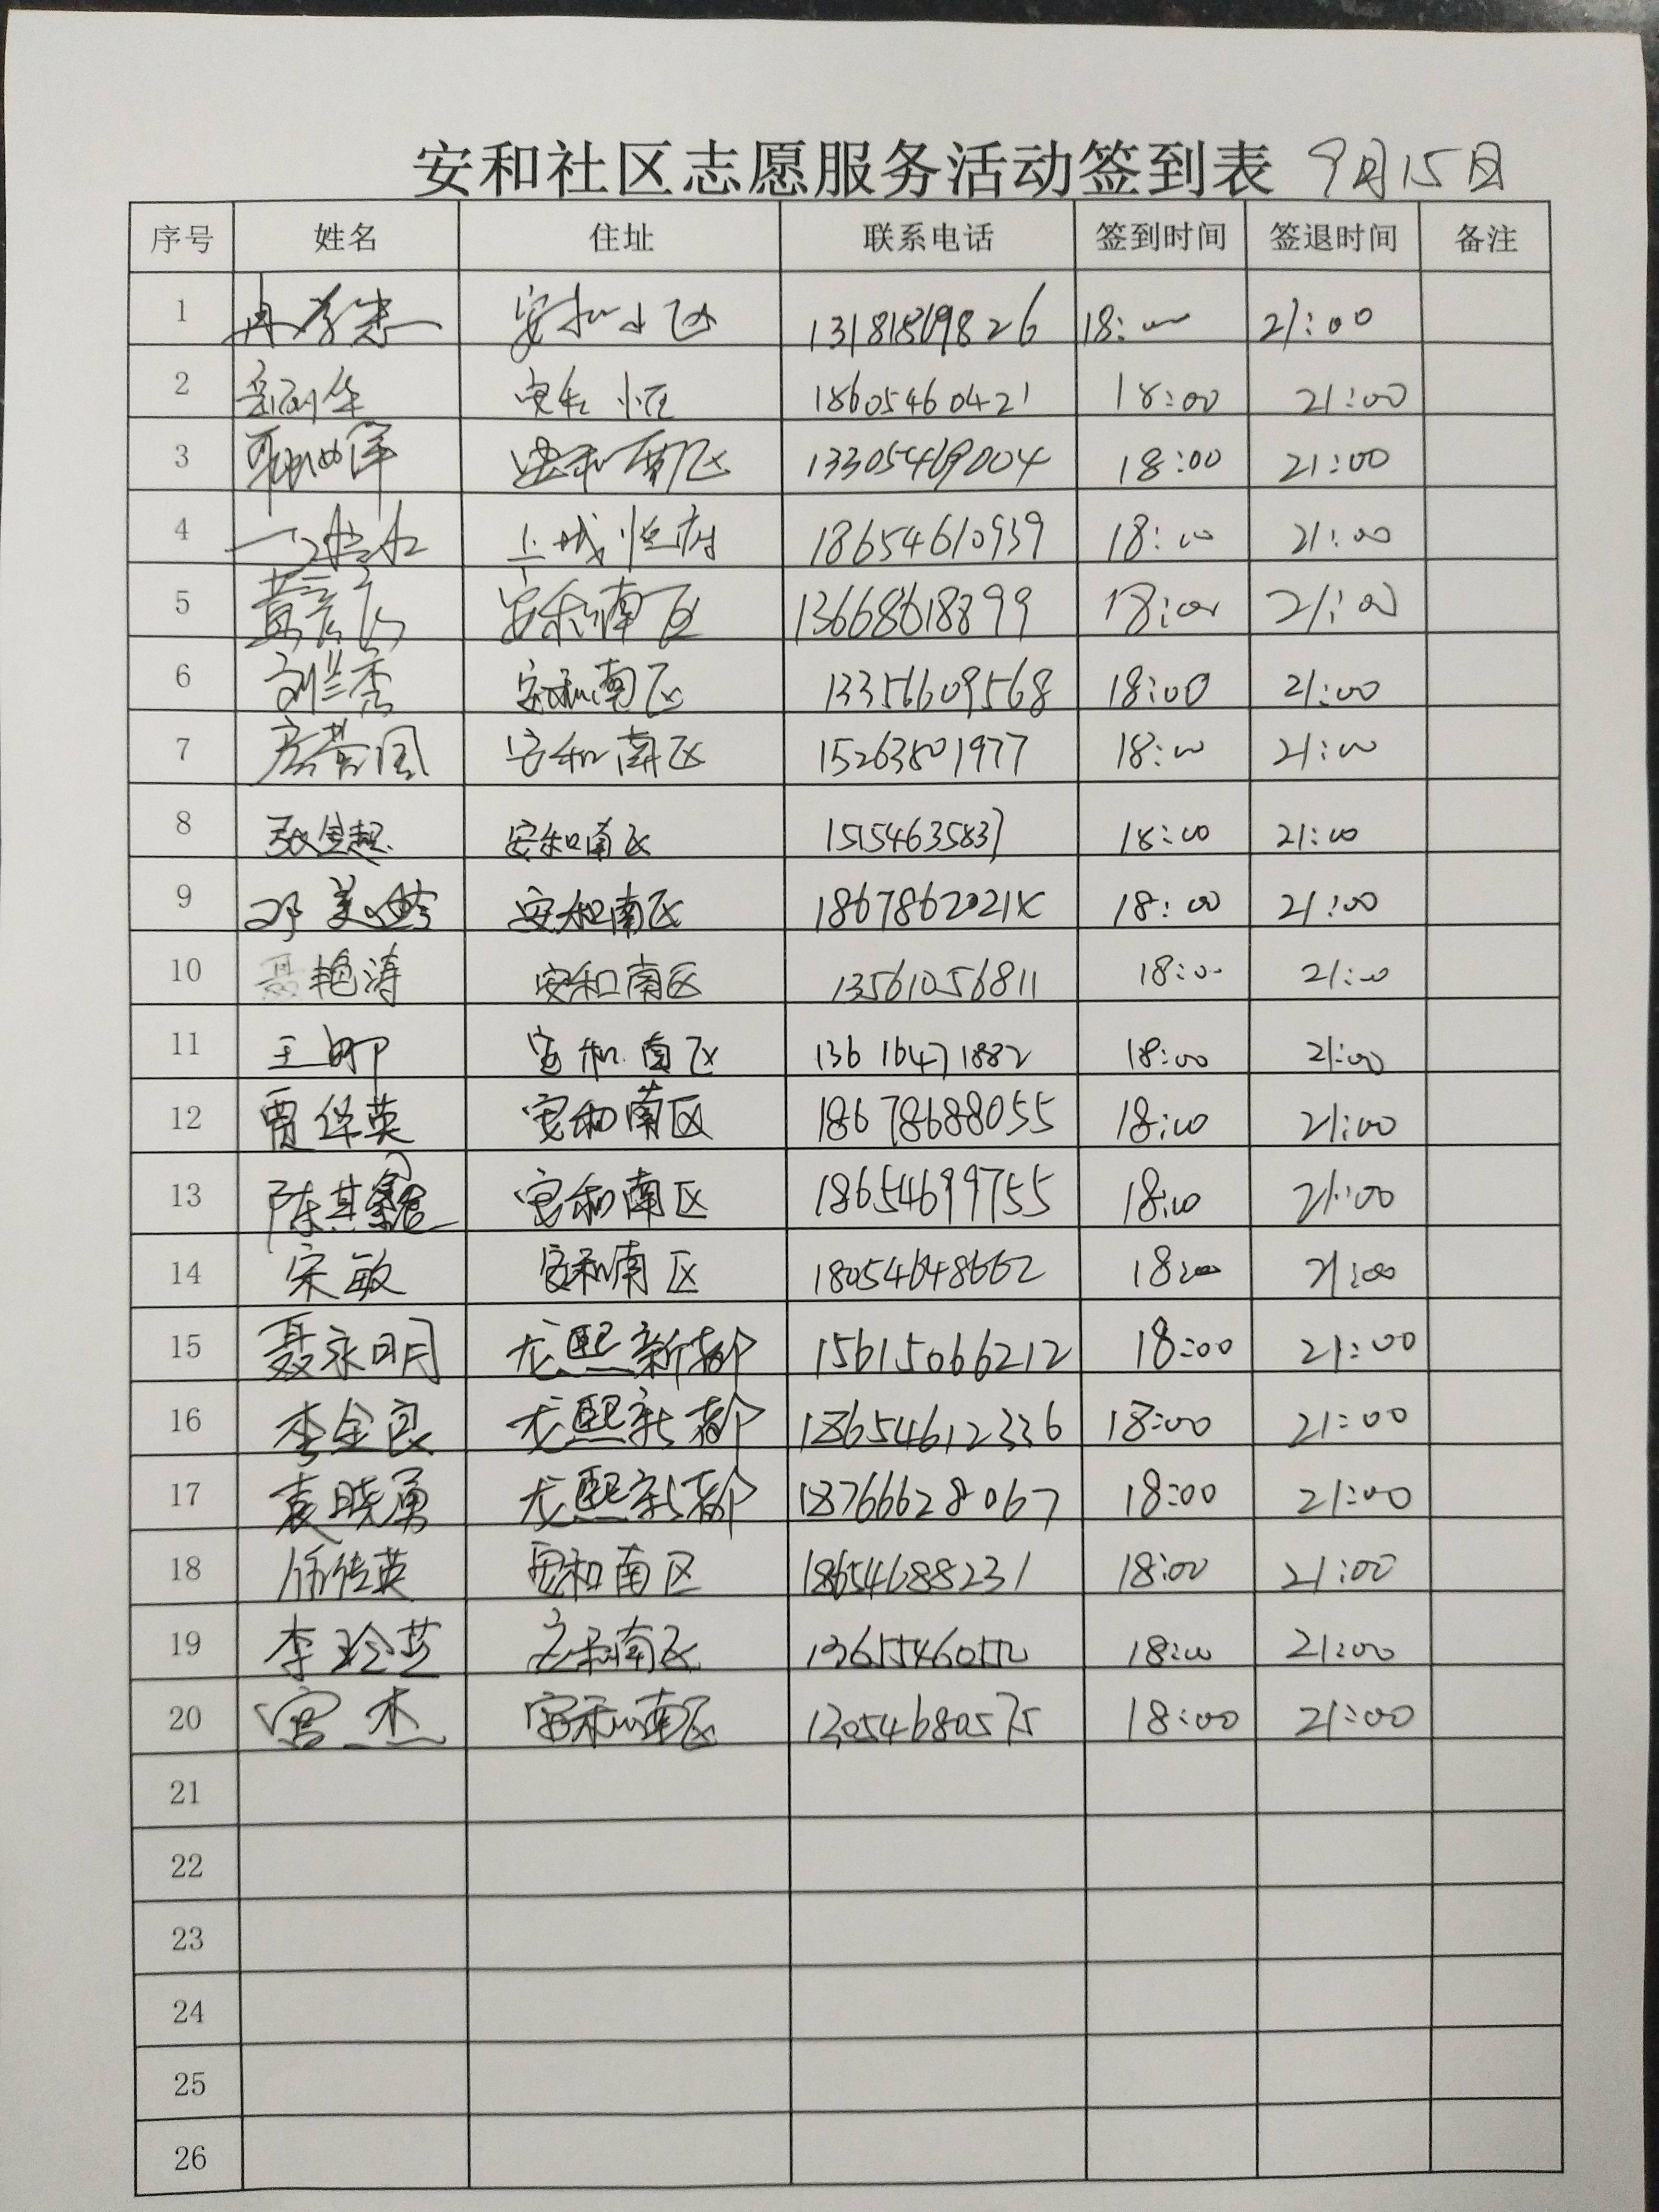 安和社区志愿服务活动签到表 9月15日
序号 姓名 住址 联系电话 签到时间 签退时间 备注
1 安和小区 18:00 21:00
2 安和小区 18605460421 18:00 21:00
3 安和南区 13305469004 18:00 21:00
4 18654610939 18:00 21:00
5 安和南区 13668618899 18:00 21:00
6 刘兰秀 安和南区 13356609568 18:00 21:00
7 安和南区 15263801977 18:00 21:00
8 安和南区 15154635837 18:00 21:00
9 邓美玲 安和南区 18:00 21:00
10 聂艳涛 安和南区 13561056811 18:00 21:00
11 安和南区 13616471882 18:00 21:00
12 贾华英 安和南区 18678688055 18:00 21:00
13 安和南区 18654699755 18:00 21:00
14 宋敏 安和南区 18054648662 18:00 21:00
15 聂永明 龙熙新都 15615066212 18:00 21:00
16 李金良 龙熙新都 18654612336 18:00 21:00
17 袁晓勇 龙熙新都 18766628067 18:00 21:00
18 安和南区 18654688231 18:00 21:00
19 李玲芝 安和南区 18:00 21:00
20 宫杰 安和南区 18:00 21:00
21
22
23
24
25
26